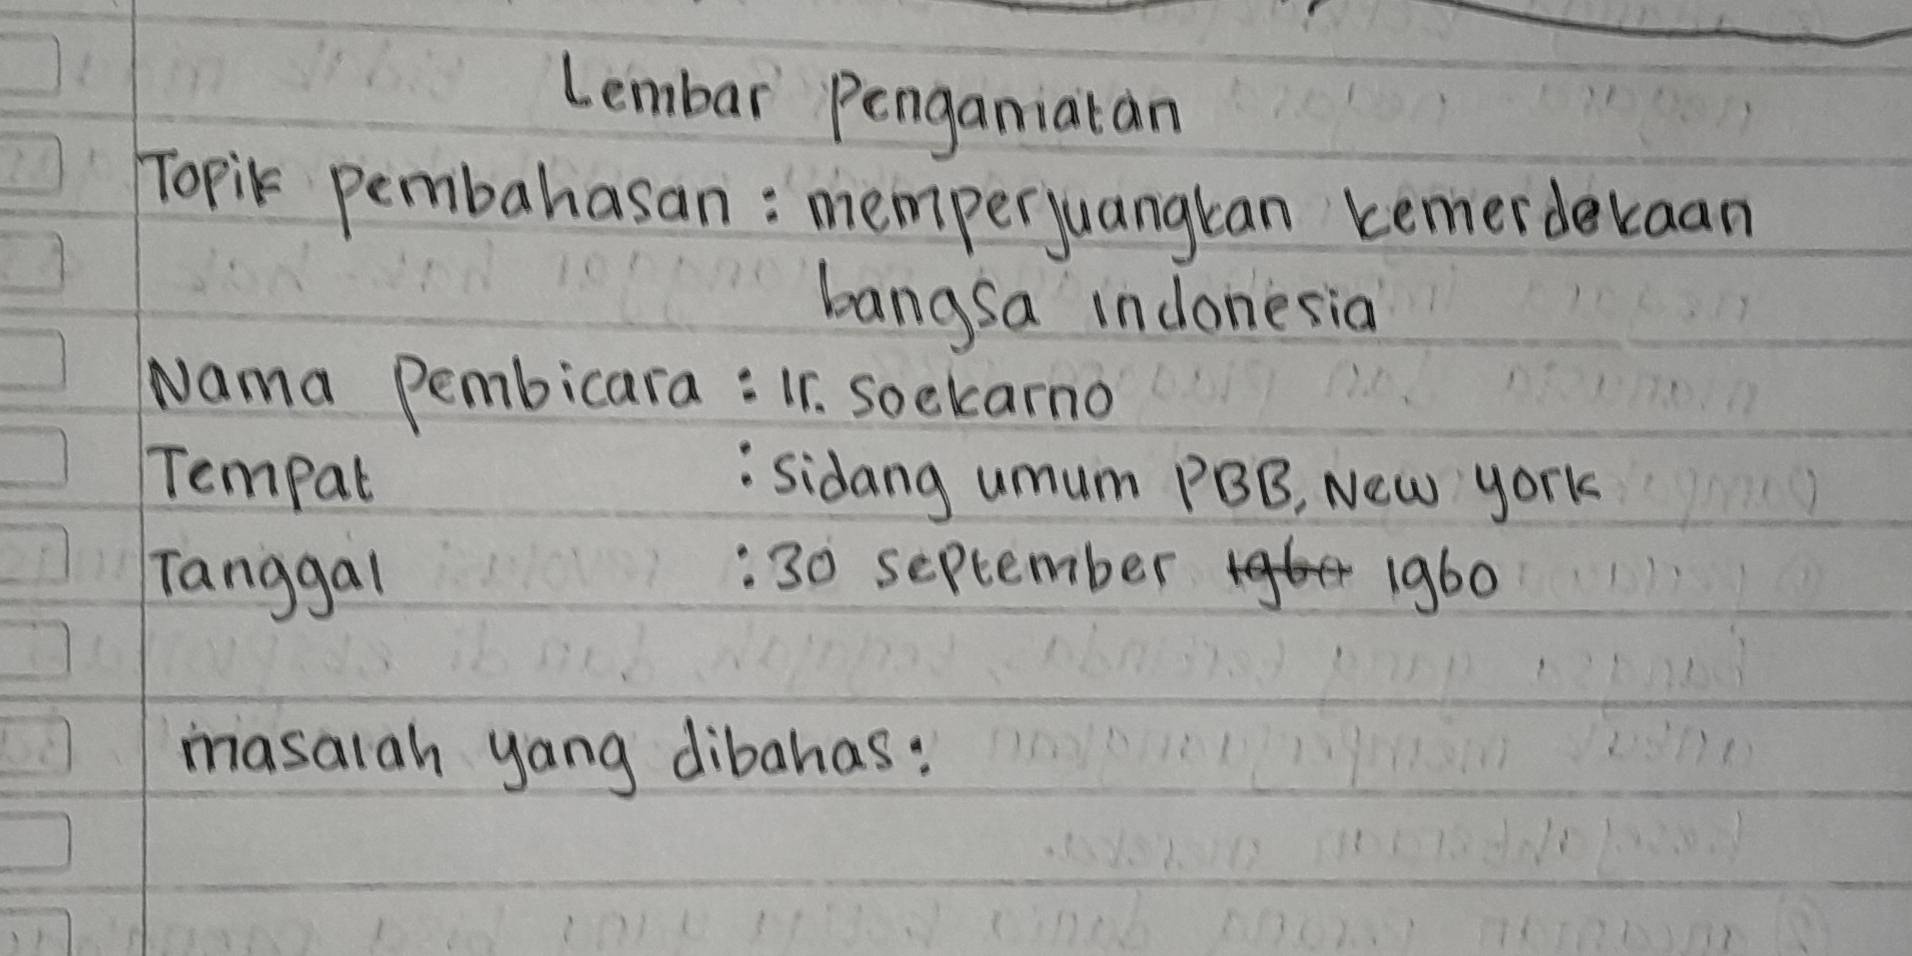 Lembar Pengamatan
Topik pembahasan : memperjuangkan kemerdekaan
bangsa indonesia
Nama Pembicara : Ir. Soekarno
Tempat : Sidang umum PBB, New york
Tanggal : 30 september 1960 1960
masalah yang dibahas: